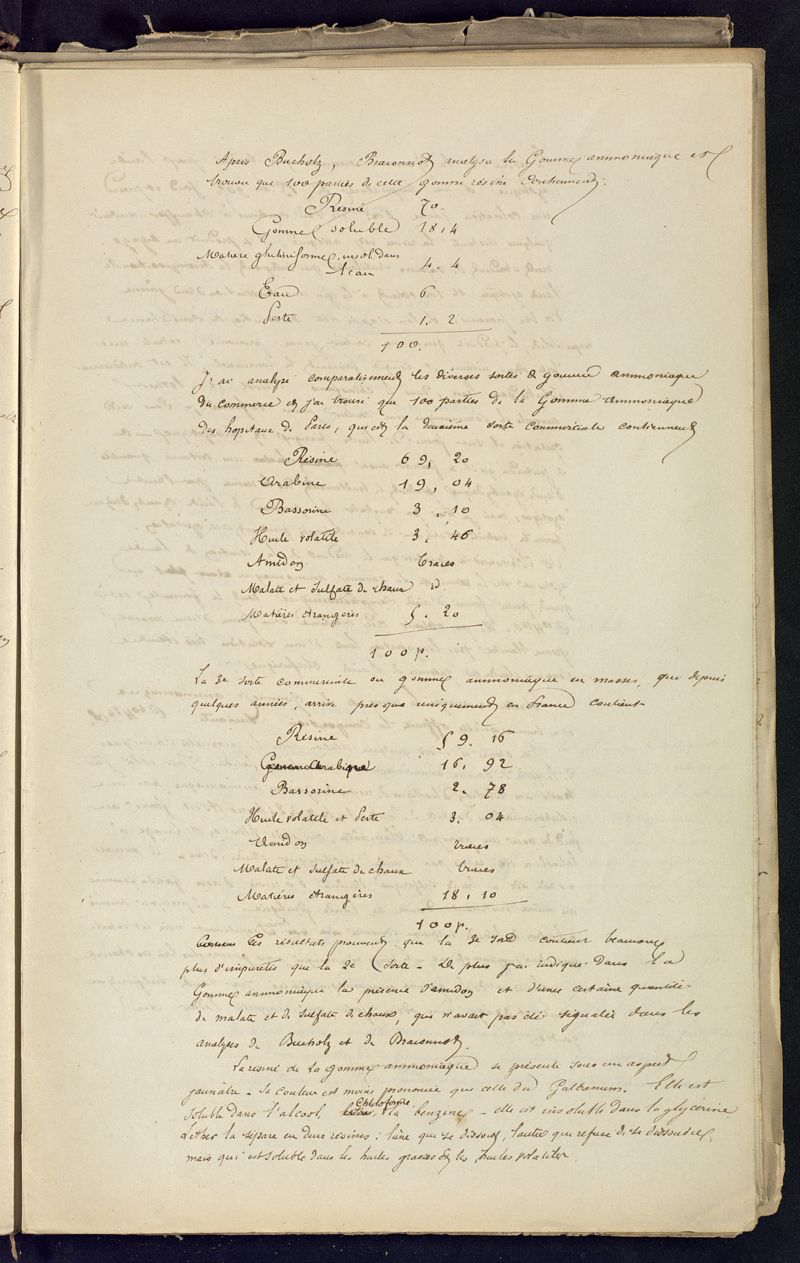 Après Bucholz, Braconnot analysa la Gomme ammoniaque et
trouva que 100 parties de cette gomme résine contiennent:
Résine 70.
Gomme soluble 18,4
Matière glutiniforme insol. dans
l'eau 4. 4
Eau 6
Perte 1. 2
100.
J'ai analysé comparativement les diverses sortes de gomme ammoniaque
du commerce et j'ai trouvé que 100 parties de la Gomme ammoniaque
des hopitaux de Paris, qui est la deuxième sorte commerciale contiennent
Résine 69, 20
Arabine 19, 04
Bassorine 3, 10
Huile volatile 3. 46
Amidon traces
Malate et sulfate de chaux id
Matières étrangères 5. 20
100 p.
La 3e sorte commerciale ou gomme ammoniaque en masses, qui depuis
quelques années, arrive presque uniquement en France contient
Résine 59. 16
Gomme Arabique 16. 92
Bassorine 2. 78
Huile volatile et Perte 3. 04
Amidon traces
Malate et sulfate de chaux traces
Matières étrangères 18, 10
100 p.
Ces résultats prouvent que la 3e sorte contient beaucoup
plus d'impuretés que la 2e sorte - De plus j'ai indiqué dans la
Gomme ammoniaque la présence d'amidon et d'une certaine quantité
de malate et de sulfate de chaux, qui n'avait pas été signalée dans les
analyses de Bucholz et de Braconnot.
La résine de la gomme ammoniaque se présente sous un aspect
jaunâtre - sa couleur est moins prononcée que celle du Galbanum. Elle est
soluble dans l'alcool, Chloroforme, la benzine - elle est insoluble dans la glycerine
L'ether la sépare en deux résines: l'une qui se dissout, l'autre qui refuse de se dissoudre,
mais qui est soluble dans les huiles grasses et les huiles volatiles.